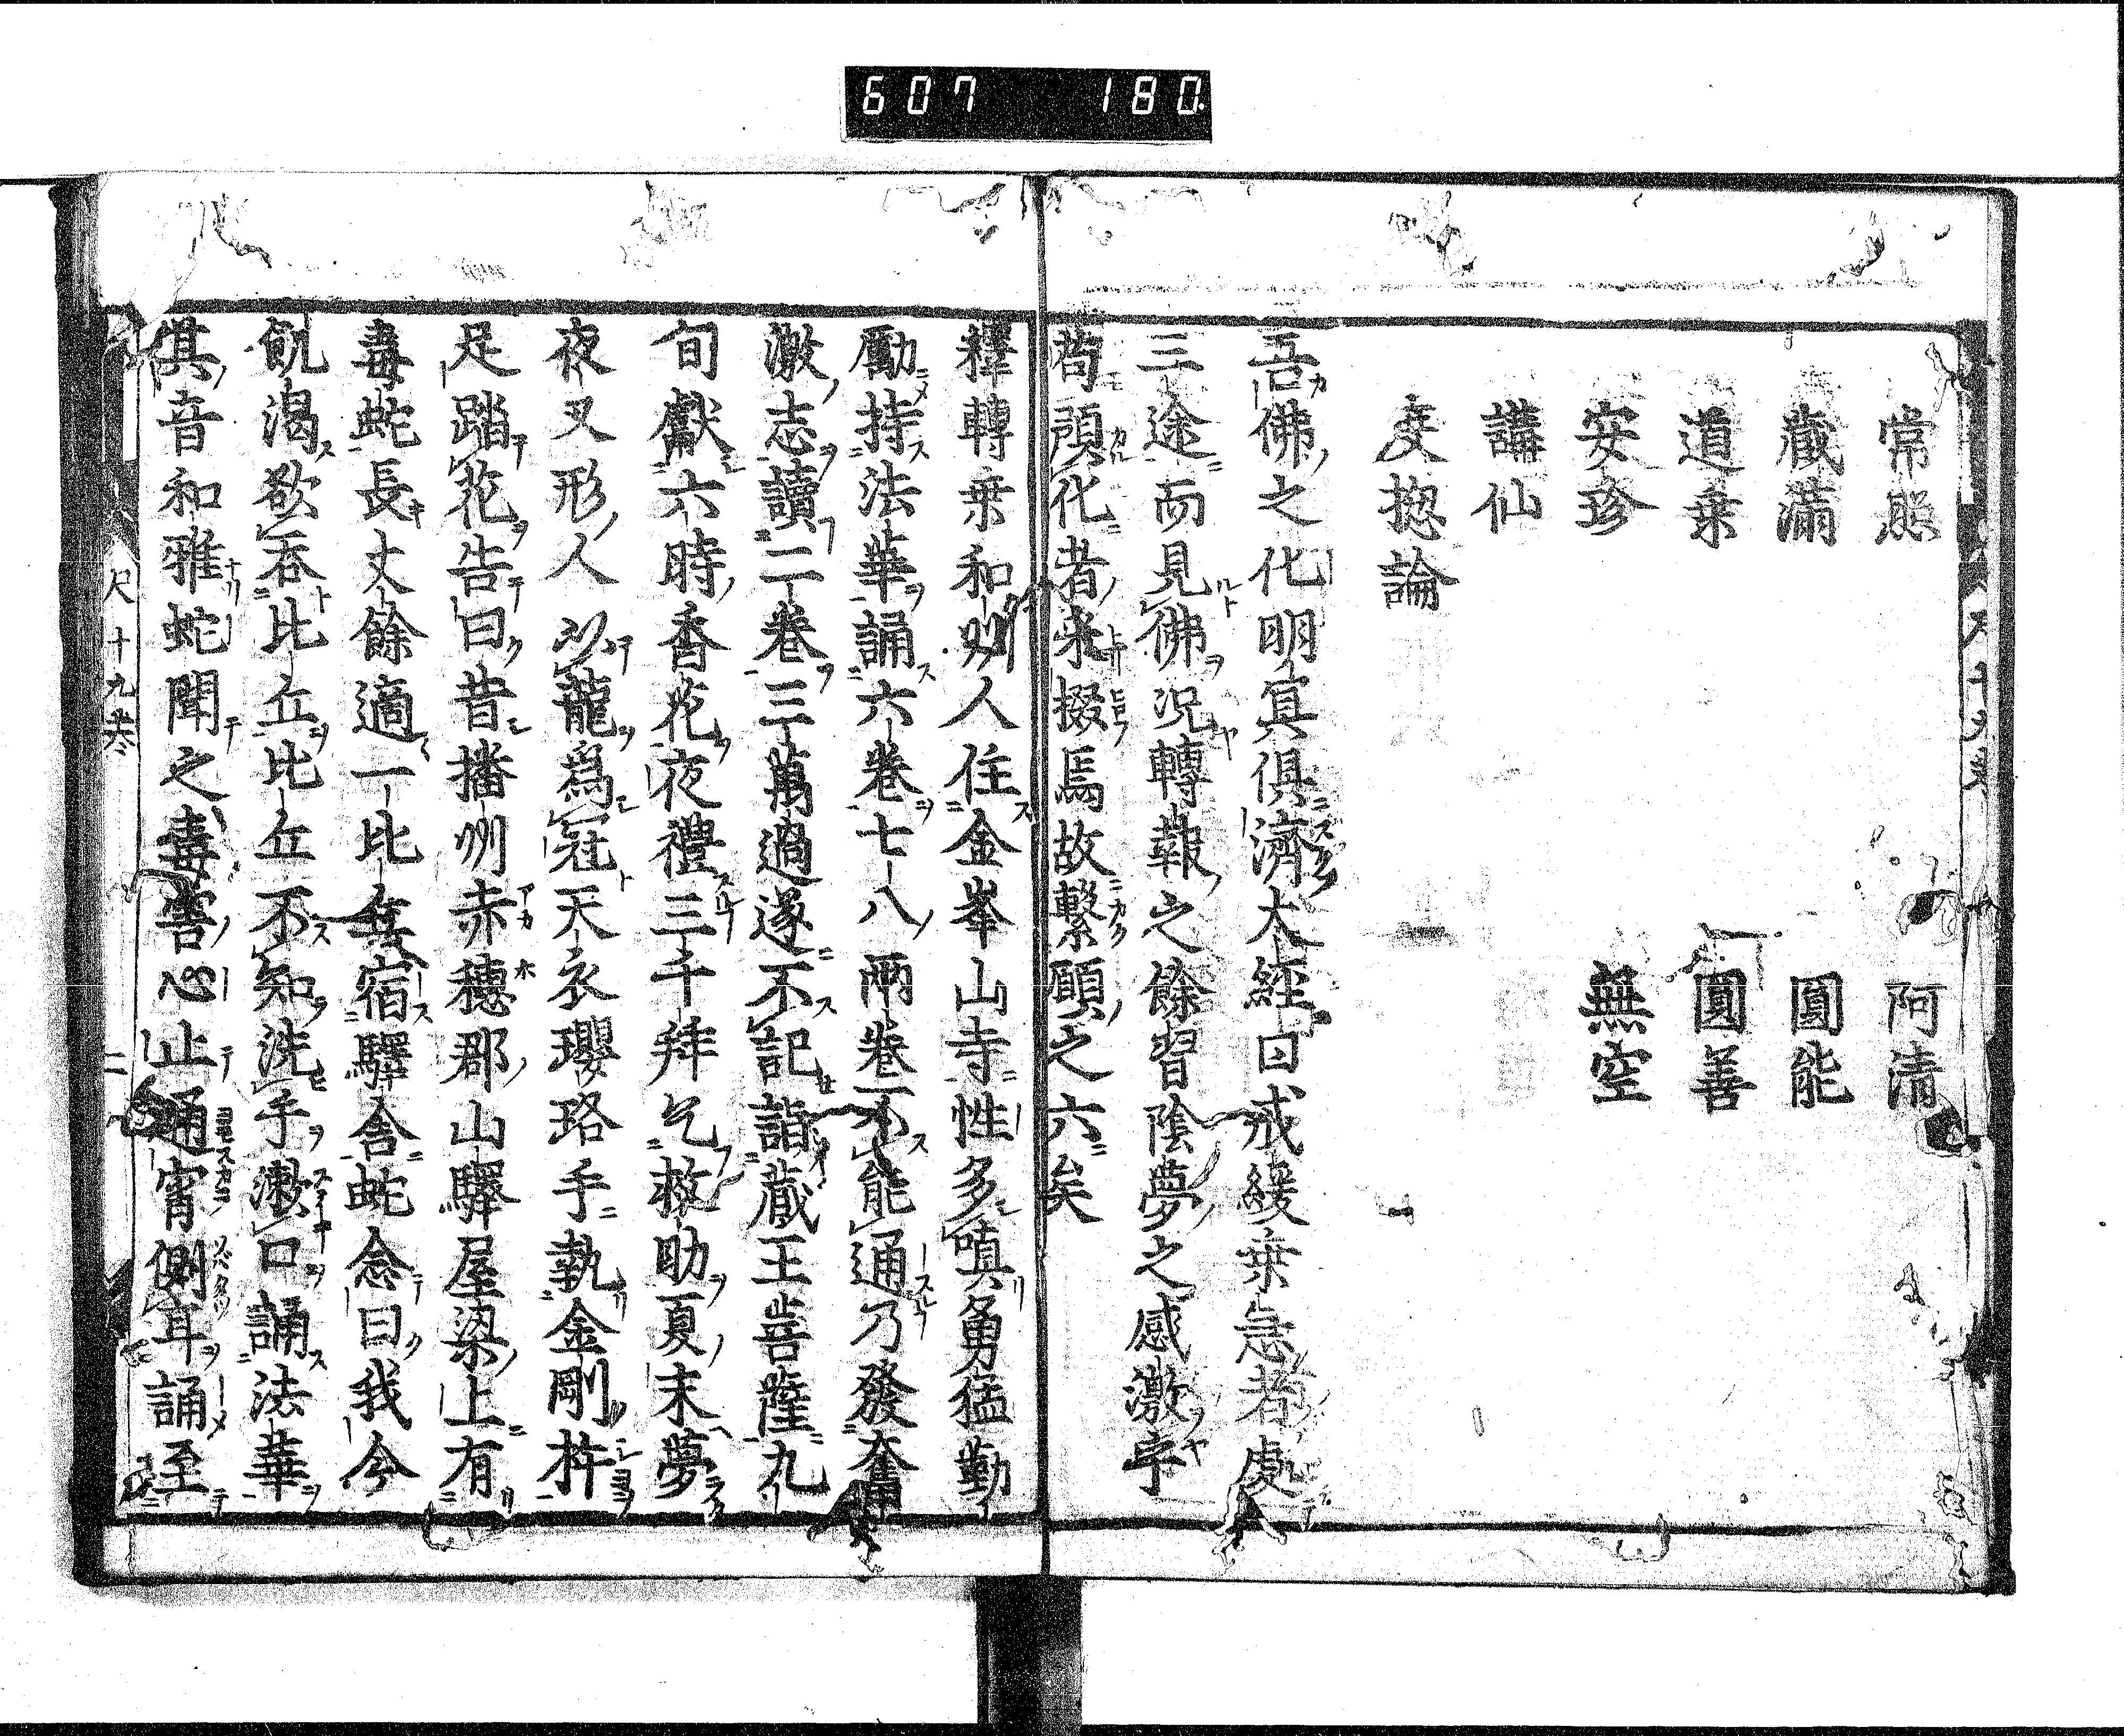 607 180.
常熈 阿清
藏滿 圓能
道乗 圓善
安珍 無空
講仙
支揔論
吾佛之化明冥俱濟大經曰戒緩乗急者處
三途而見佛況轉報之餘習陰夢之感激乎
苟預化者釆掇焉故繫願之六矣
釋轉乗和州人住金峯山寺性多嗔勇猛勤
勵持法華誦六卷七八兩卷不能通乃發奮
激志讀二卷三萬遍遂不記詣藏王菩薩九
旬獻六時香花夜禮三千拜乞救助夏末夢
夜叉形人以龍爲冠天衣瓔珞手執金剛杵
足踏花告曰昔播州赤穗郡山驛屋梁上有
毒蛇長丈餘適一比丘宿驛舎蛇念曰我今
飢渴欲吞比丘比丘不知洗手漱口誦法華
其音和雅蛇聞之毒害心止通宵側耳誦至
尺十九卷 二